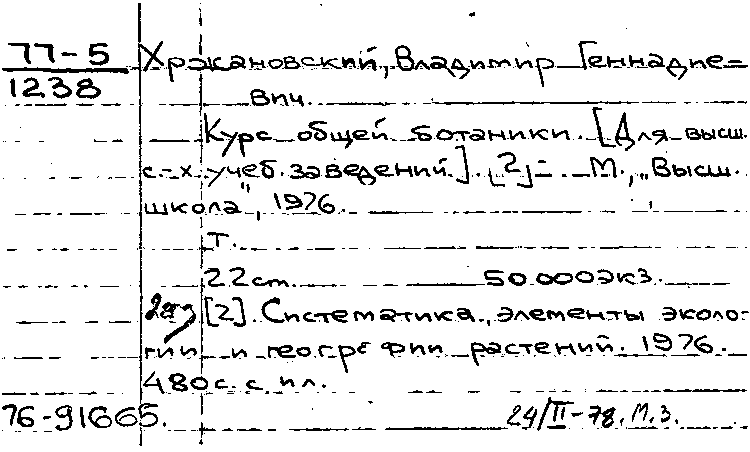 77-5 Хржановский, Владимир Геннадие=
1238
вич.
Курс общей ботаники. [Для высш.
с-х. учеб. заведений]. [2]- . М., „Высш.
школа", 1976.
т.
22 см. 50.000 экз.
2 экз [2]. Систематика, элементы эколо-
гии и географии растений. 1976.
480 с. с ил.
76-91665. 24/II-78. М.З.